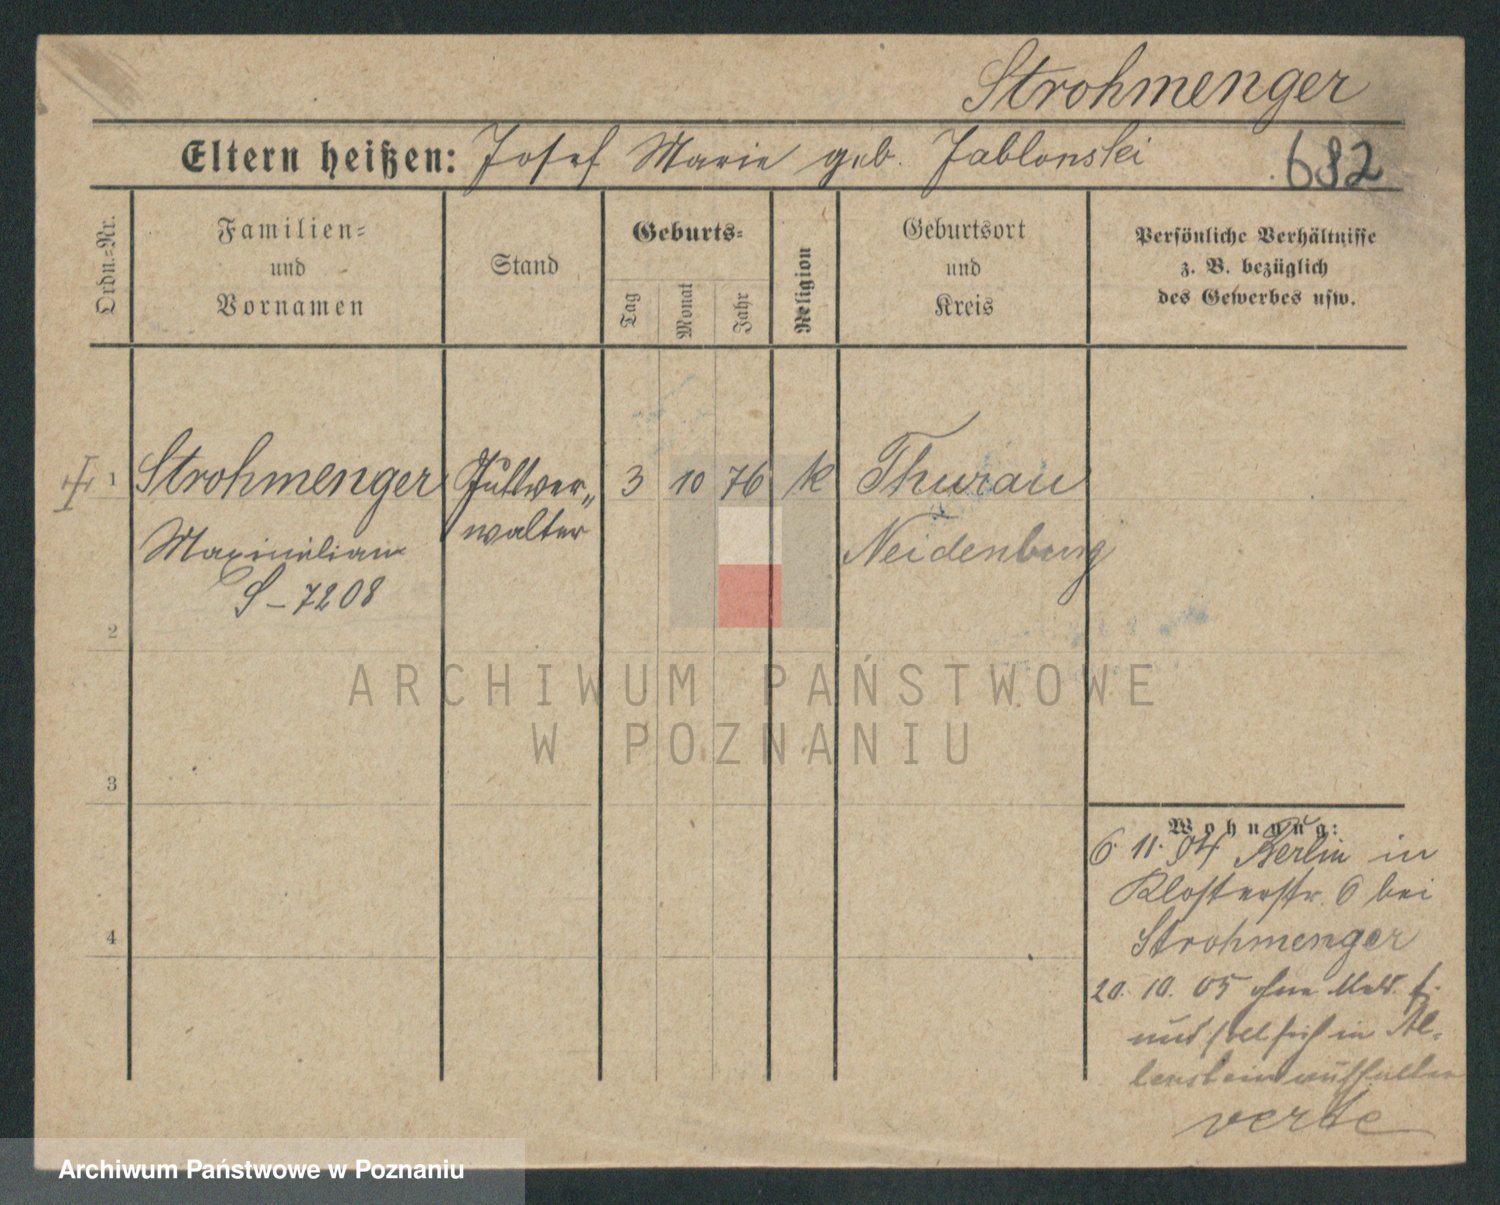 Strohmenger
Eltern heißen: Josef Marie geb. Jablonski 682
Ordn.-Nr.
Familien-
und
Vornamen
Stand
Geburts-
Tag
Monat
Jahr
Religion
Geburtsort
und
Kreis
Persönliche Verhältnisse
z. B. bezüglich
des Gewerbes usw.
1 Strohmenger 3 10 76 k Thurau
walter
Maximilian Neidenburg
S-7208
2
ARCHIWUM PAŃSTWOWE
W POZNANIU
3
Wohnung:
6. 11. 04 Berlin in
Klosterstr. 6 bei
4
Strohmenger
20. 10. 05 ohne Meld. f.
und soll sich in Al-
lenstein aufhalten
Archiwum Państwowe w Poznaniu